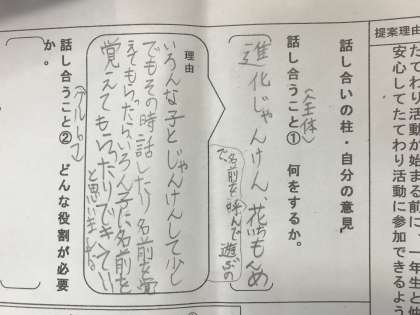 提案理由
たてわり活動が始まる前に、一年生と仲
安心してたてわり活動に参加できるよう
話し合いの柱・自分の意見
（全体）
話し合うこと① 何をするか。
進化じゃんけん、花いちもんめ
名前を呼んで遊ぶの
で、
理由
いろんな子とじゃんけんして少し
でもその時話したり名前を覚
えてもらったらいろんな子に名前を
覚えてもらったりできていい
と思いました。
（グループ）
話し合うこと② どんな役割が必要
か。